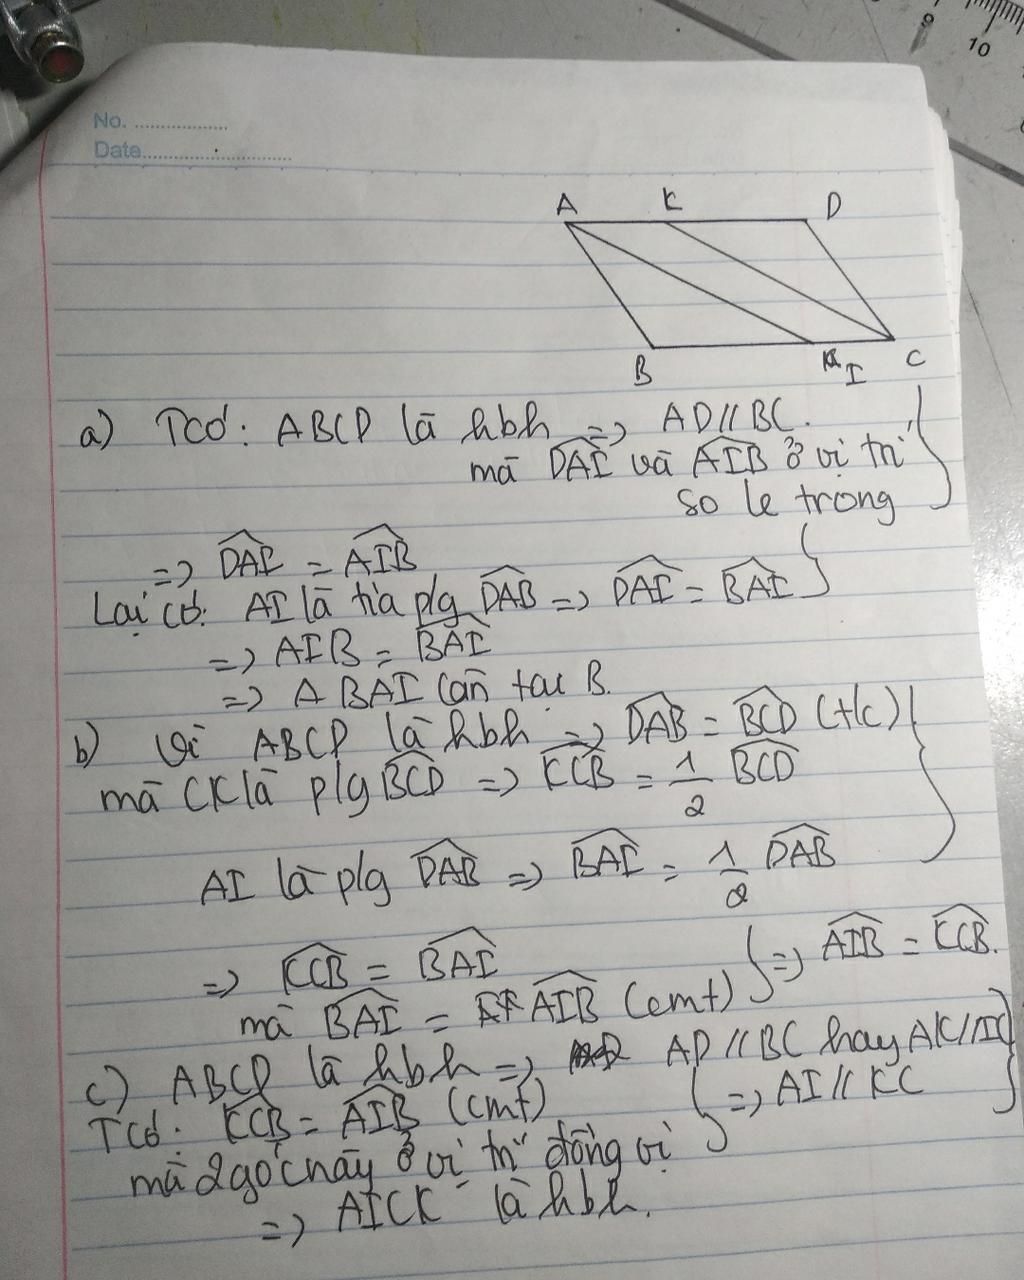 9
10
No. ..................
Date..............................
A K D
B I C
a) Tcó: ABCD là hbh => AD // BC.
mà DAI và AIB ở vị trí
so le trong
=> DAI = AIB
Lại có: AI là tia p/g DAB => DAI = BAI
=> AIB = BAI
=> Δ BAI cân tại B.
b) Vì ABCD là hbh => DAB = BCD (t/c)
mà CK là p/g BCD => KCB = 1/2 BCD
AI là p/g DAB => BAI = 1/2 DAB
=> KCB = BAI
=> AIB = KCB.
mà BAI = AIB (cmt)
c) ABCD là hbh => AD // BC hay AK // IC
Tcó: KCB = AIB (cmt) => AI // KC
mà 2 góc này ở vị trí đồng vị
=> AICK là hbh.